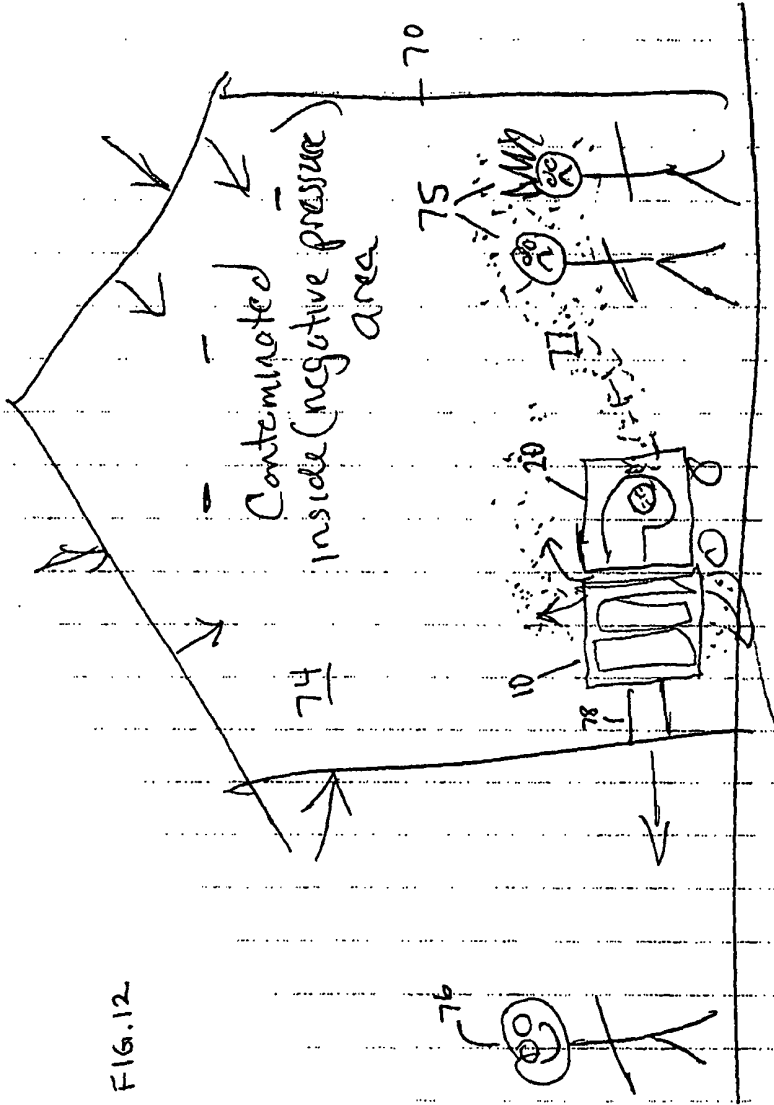 FIG. 12
70
Contaminated
inside (negative pressure)
area
74
75
77
20
10
78
76